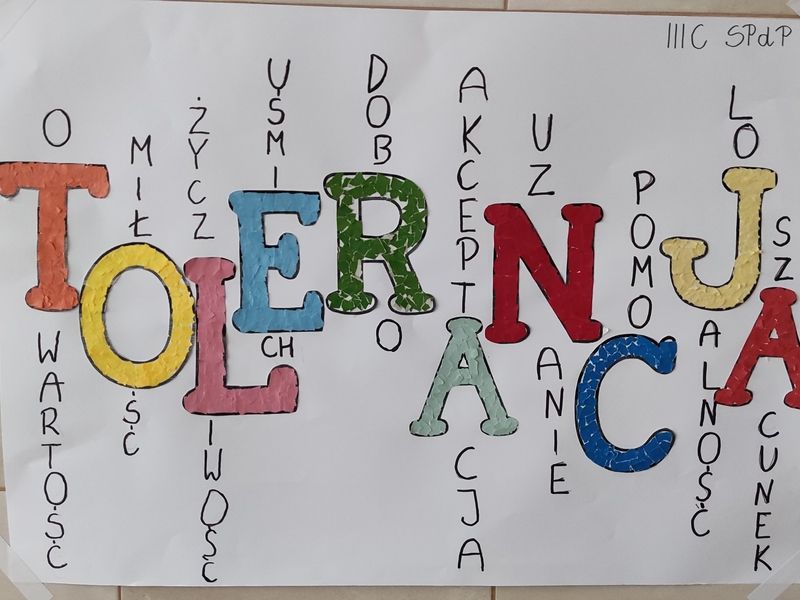 IIIC SPdP
TOLERANCJA
OTWARTOŚĆ
MIŁOŚĆ
ŻYCZLIWOŚĆ
UŚMIECH
DOBRO
AKCEPTACJA
UZNANIE
POMOC
LOJALNOŚĆ
SZACUNEK